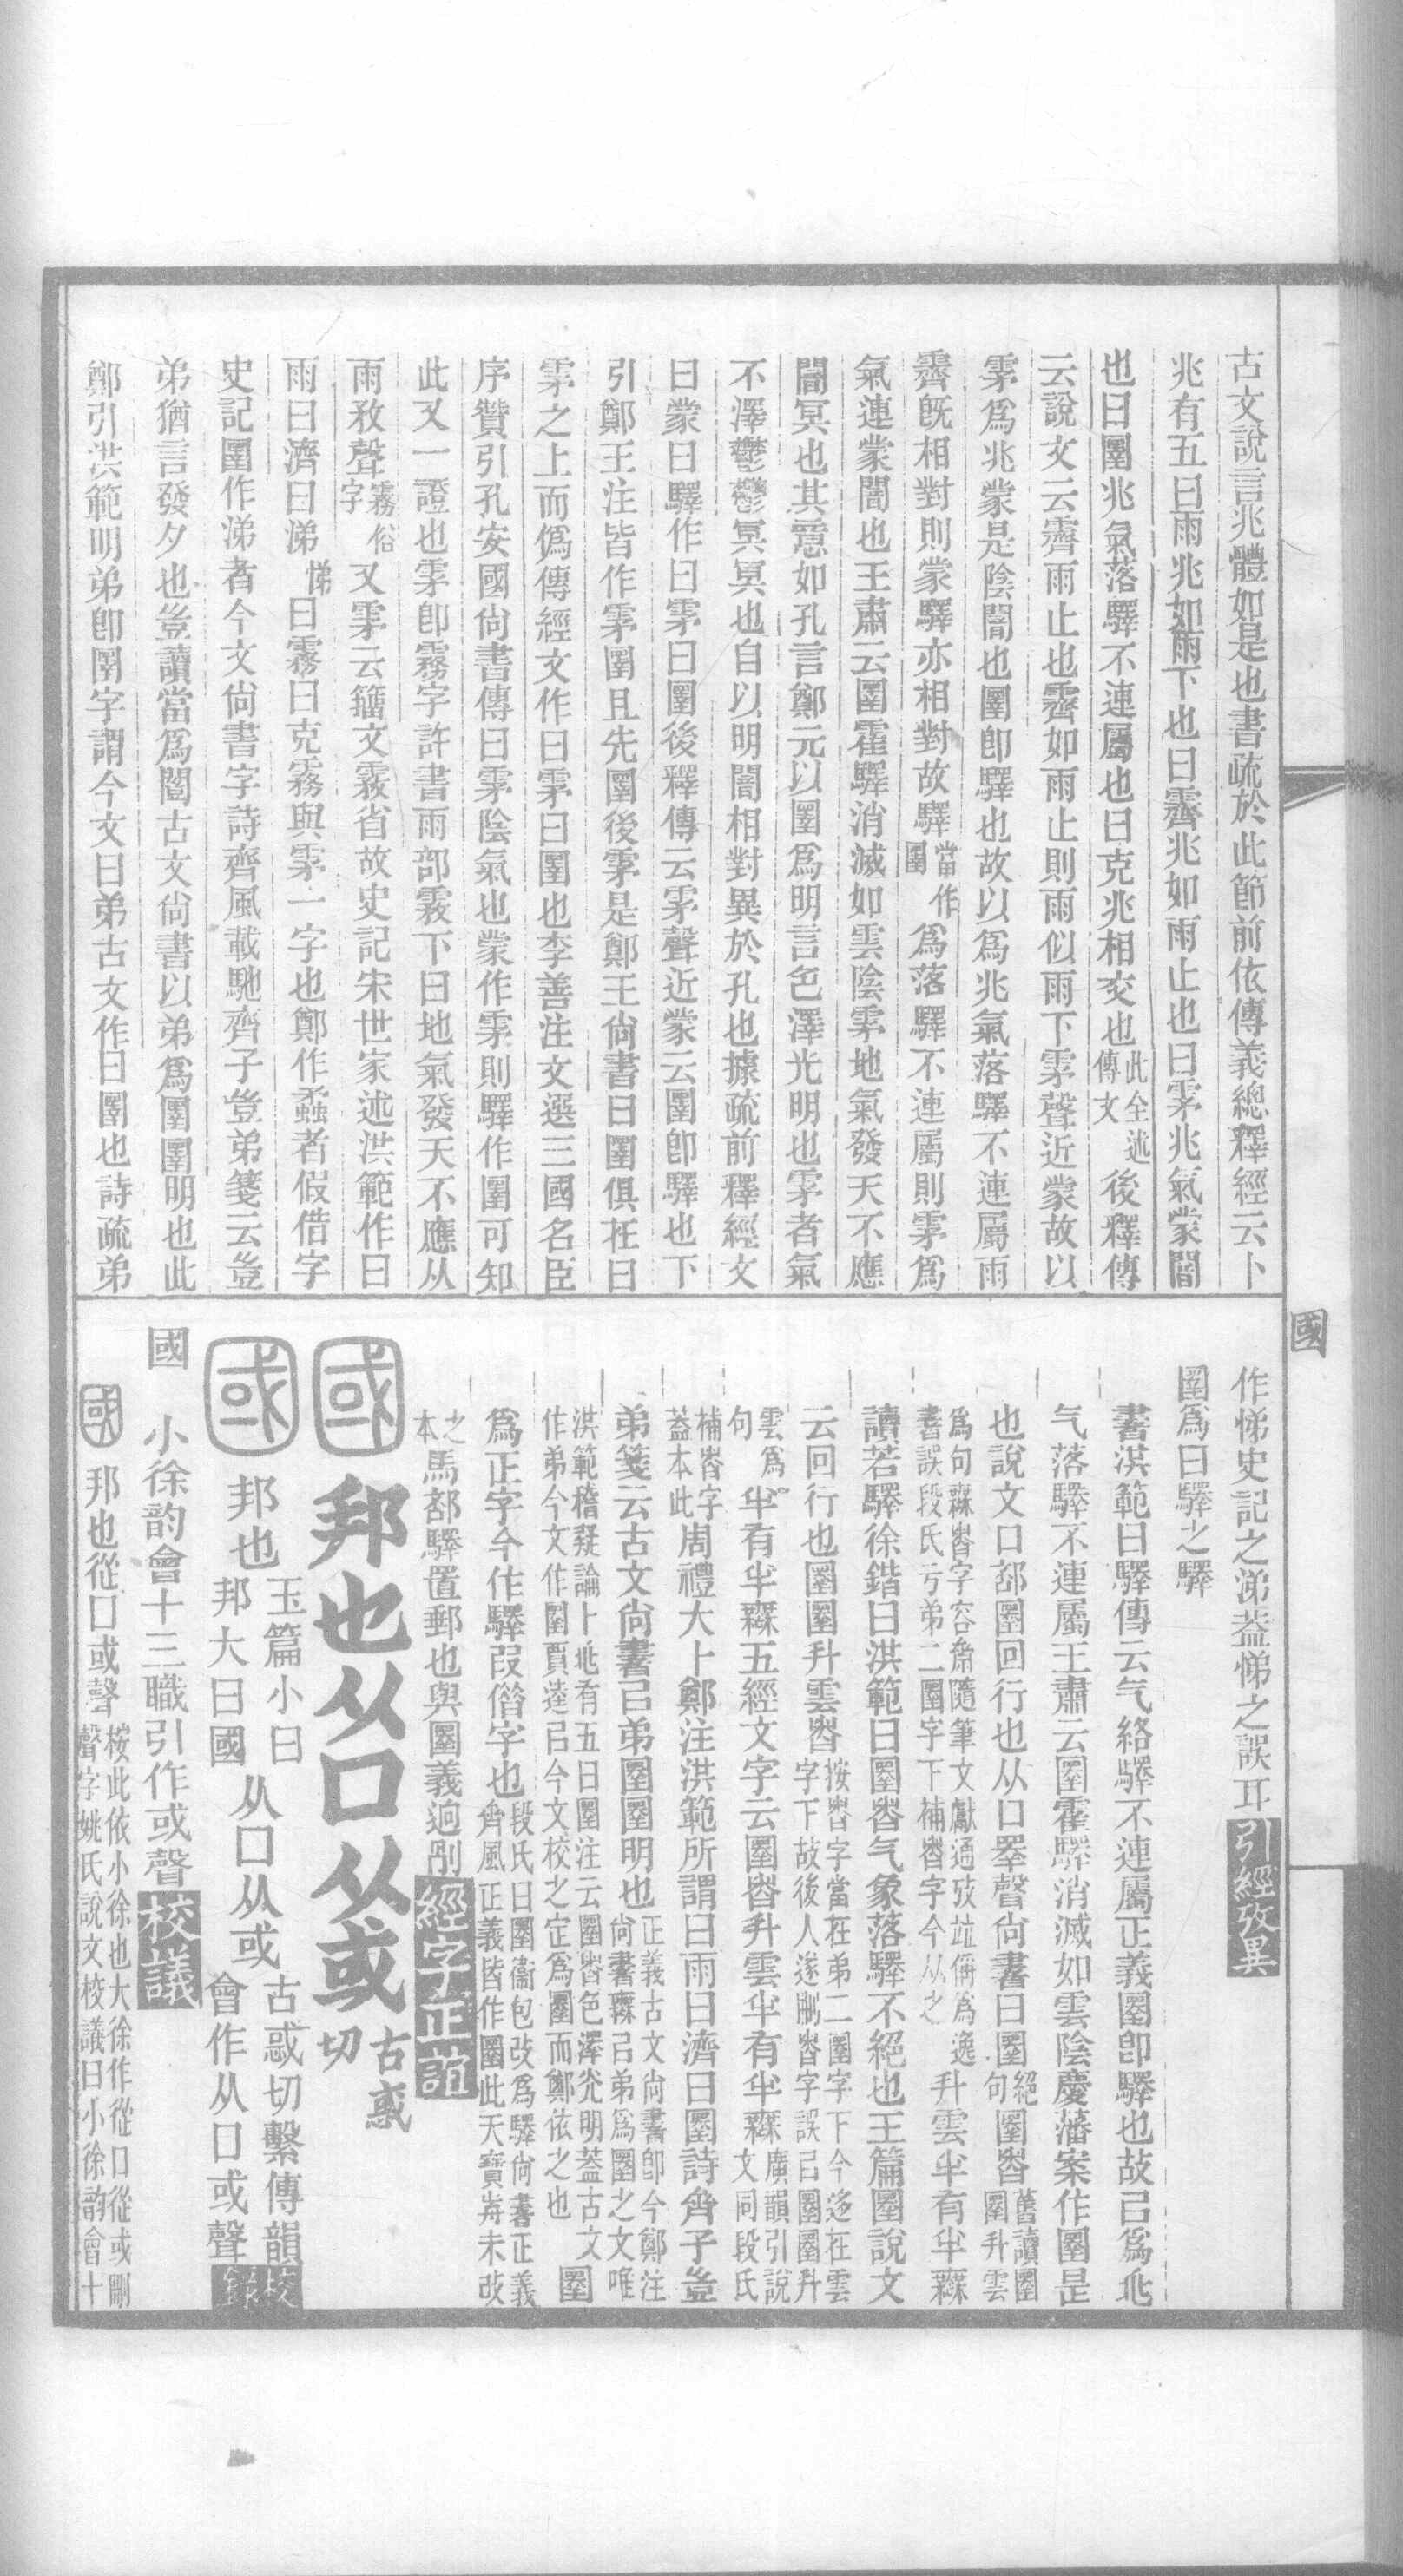 古文說言兆體如是也書疏於此節前依傳義總釋經云卜
兆有五曰雨兆如雨下也曰霽兆如雨止也曰雺兆氣蒙闇
也曰圛兆氣落驛不連屬也曰克兆相交也此全述傳文後釋傳
云說文云霽雨止也霽如雨止則雨似雨下雺聲近蒙故以
雺爲兆蒙是陰闇也圛卽驛也故以爲兆氣落驛不連屬雨
霽旣相對則蒙驛亦相對故驛當作圛爲落驛不連屬則雺爲
氣連蒙闇也王肅云圛霍驛消滅如雲陰雺地氣發天不應
闇冥也其意如孔言鄭元以圛爲明言色澤光明也雺者氣
不澤鬱鬱冥冥也自以明闇相對異於孔也據疏前釋經文
曰蒙曰驛作曰雺曰圛後釋傳云雺聲近蒙云圛卽驛也下
引鄭王注皆作雺圛且先圛後雺是鄭王尙書曰圛俱在曰
雺之上而僞傳經文作曰雺曰圛也李善注文選三國名臣
序贊引孔安國尙書傳曰雺陰氣也蒙作雺則驛作圛可知
此又一證也雺卽霧字許書雨部霚下曰地氣發天不應从
雨敄聲霧俗字又雺云籒文霚省故史記宋世家述洪範作曰
雨曰濟曰涕悌曰霧曰克霧與雺一字也鄭作蟊者假借字
史記圛作涕者今文尙書字詩齊風載馳齊子豈弟箋云豈
弟猶言發夕也豈讀當爲闓古文尙書以弟爲圛圛明也此
鄭引洪範明弟卽圛字謂今文曰弟古文作曰圛也詩疏弟
作悌史記之涕蓋悌之誤耳引經攷異
圛爲曰驛之驛
書洪範曰驛傳云气絡驛不連屬正義圛卽驛也故㠯爲兆
气落驛不連屬王肅云圛霍驛消滅如雲陰慶藩案作圛是
也說文口部圛回行也从口睪聲尙書曰圛絕句圛㫺舊讀圛圛升雲
爲句無㫺字容齋隨筆文獻通攷竝偁爲逸書誤段氏亏弟二圛字下補㫺字今从之升雲半有半無
讀若驛徐鍇曰洪範曰圛㫺气象落驛不絕也王篇圛說文
云回行也圛圛升雲㫺按㫺字當在弟二圛字下今迻在雲字下故後人遂刪㫺字誤㠯圛圛升
雲爲句半有半無五經文字云圛㫺升雲半有半無廣韻引說文同段氏
補㫺字蓋本此周禮大卜鄭注洪範所謂曰雨曰濟曰圛詩齊子豈
弟箋云古文尙書㠯弟圛圛明也正義古文尙書卽今鄭注尙書無㠯弟爲圛之文唯
洪範稽疑論卜兆有五曰圛注云圛㫺色澤光明蓋古文作弟今文作圛賈逵㠯今文校之定爲圛而鄭依之也圛
爲正字今作驛叚借字也段氏曰圛衞包改爲驛尙書正義齊風正義皆作圛此天寶歬未改
之本馬部驛置郵也與圛義迥別經字正誼
國邦也从囗从或古惑切
國邦也玉篇小曰邦大曰國从囗从或古惑切繫傳韻會作从囗或聲校錄
國　小徐韵會十三職引作或聲校議
國邦也從囗或聲桉此依小徐也大徐作從囗從或刪聲字姚氏說文校議曰小徐韵會十
國